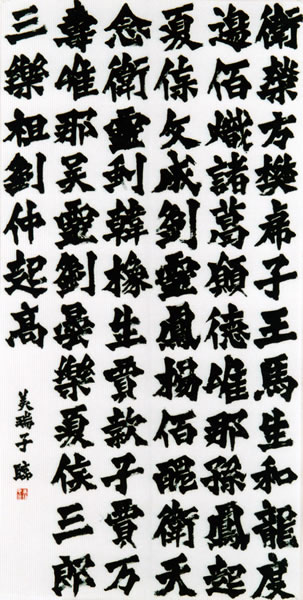 衛榮方樊虎子王馬生和龍度
邊佰熾諸葛領德唯那孫鳳起
夏侯文成劉靈鳳楊佰醜衛天
念衛靈釗韓橡生賈歎子賈万
壽唯那吴靈劉曇樂夏侯三郎
三樂祖劉仲起高
美子臨